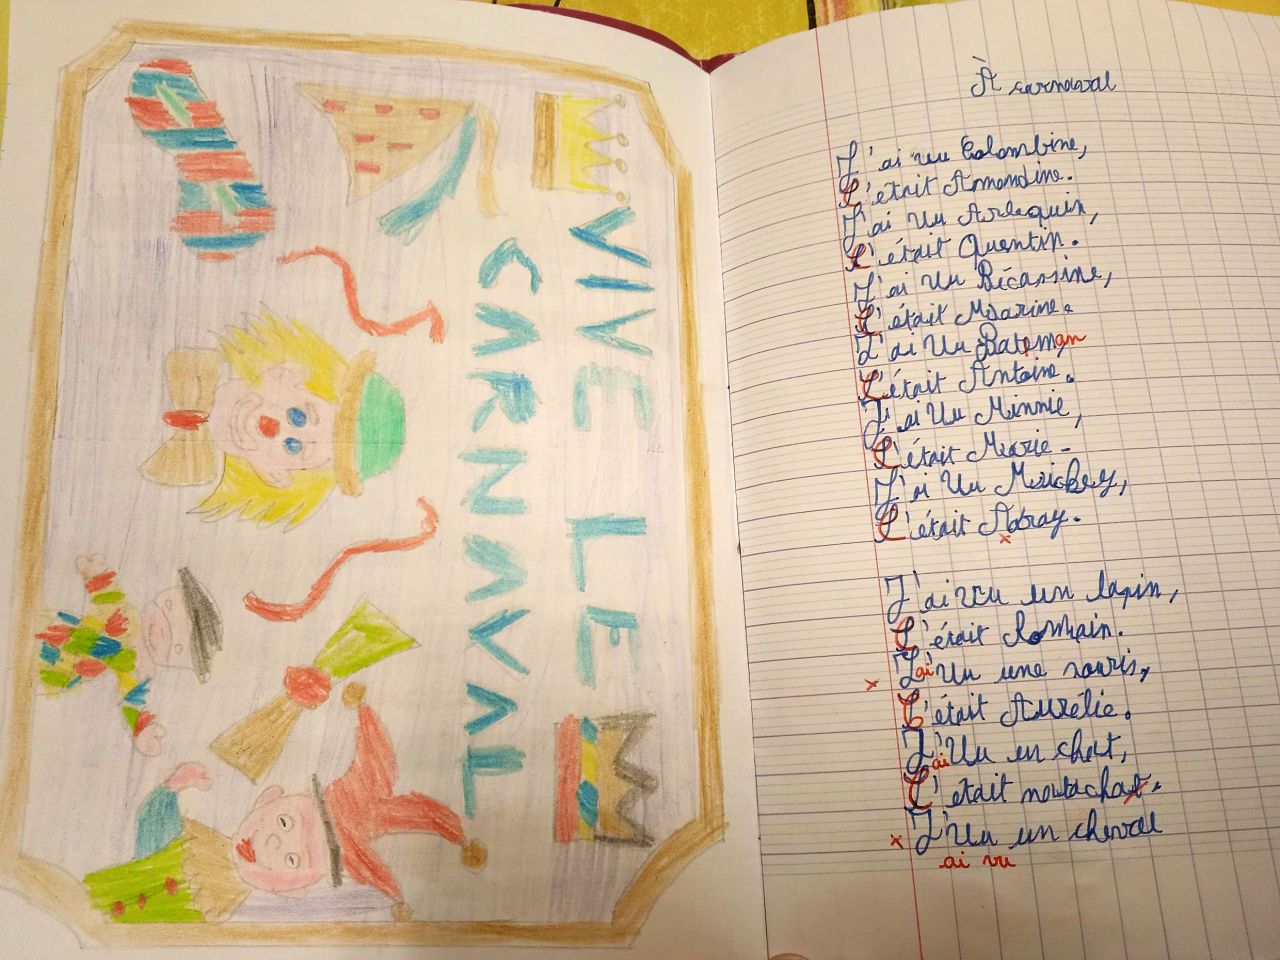 VIVE LE
CARNAVAL
À carnaval
J'ai vu Colombine,
C'était Amandine.
J'ai Vu Arlequin,
C'était Quentin.
J'ai Vu Bécassine,
C'était Marine.
J'ai Vu Bateman
C'était Antoine.
J'ai Vu Minnie,
C'était Marie.
J'ai Vu Mickey,
C'était
J'ai vu un lapin,
C'était Romain.
J'ai Vu une souris,
C'était Aurélie.
J'ai Vu un chat,
C'était
J'Vu un cheval
ai vu